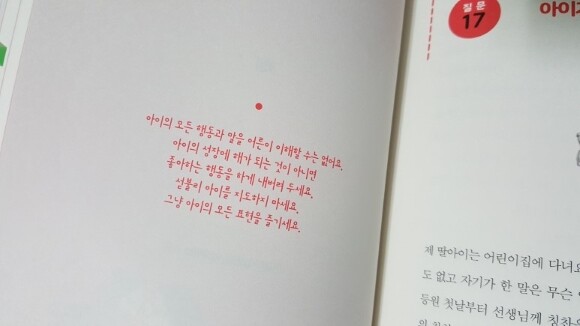 아이의 모든 행동과 말을 어른이 이해할 수는 없어요.
아이의 성장에 해가 되는 것이 아니면
좋아하는 행동을 하게 내버려 두세요.
섣불리 아이를 지도하지 마세요.
그냥 아이의 모든 표현을 즐기세요.
질문
17
제 딸아이는 어린이집에 다녀요
도 없고 자기가 한 말은 무슨
등원 첫날부터 선생님께 칭찬